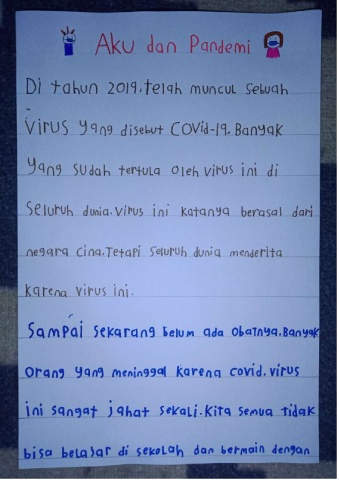 Aku dan Pandemi
Di tahun 2019.telah muncul sebuah
virus yang disebut COVid-19. Banyak
yang sudah tertula oleh virus ini di
seluruh dunia.virus ini katanya berasal dari
negara cina.Tetapi seluruh dunia menderita
karena virus ini.
Sampai sekarang belum ada obatnya.Banyak
orang yang meninggal karena covid.virus
ini sangat jahat sekali.kita semua tidak
bisa belajar di sekolah dan bermain dengan